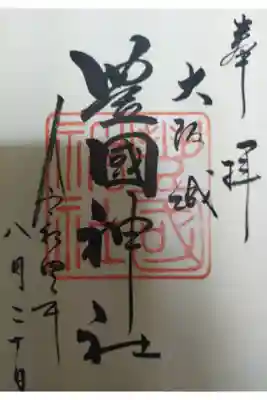 奉拝
大阪城
豊國神社
令和四年
八月二十日